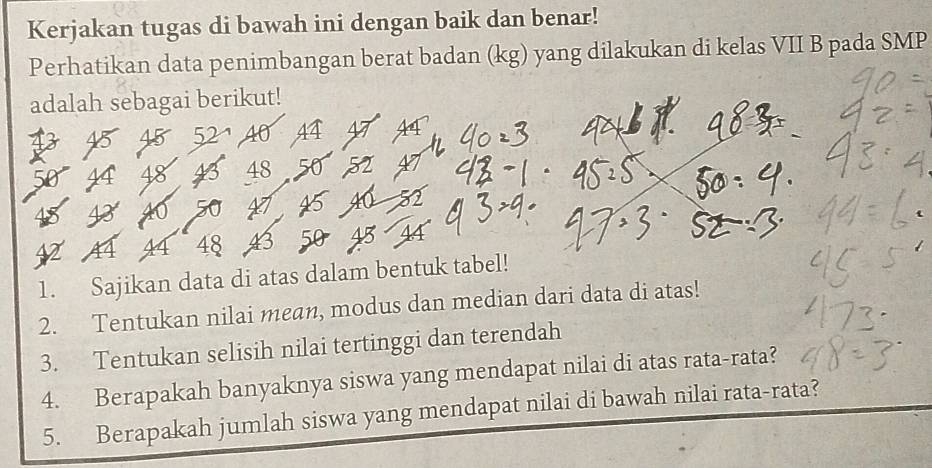 Kerjakan tugas di bawah ini dengan baik dan benar!
Perhatikan data penimbangan berat badan (kg) yang dilakukan di kelas VII B pada SMP
adalah sebagai berikut!
43 45 45 52 40 44 47 44
50 44 48 43 48 50 52 47
45 43 40 50 47 45 40 52
42 44 44 48 43 50 45 44
40=3 98=3=
43-1. 45=5 50=4.
43=9. 47=3. 52=3.
90=
42=
43=4
44=6.
45=5
473.
48=3.
1. Sajikan data di atas dalam bentuk tabel!
2. Tentukan nilai mean, modus dan median dari data di atas!
3. Tentukan selisih nilai tertinggi dan terendah
4. Berapakah banyaknya siswa yang mendapat nilai di atas rata-rata?
5. Berapakah jumlah siswa yang mendapat nilai di bawah nilai rata-rata?